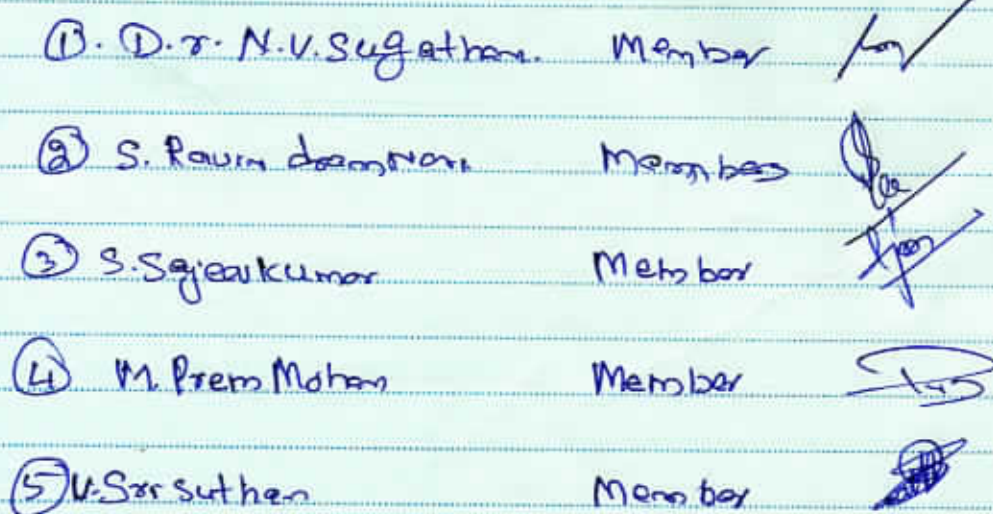 ①. D.r. N.V. Sugathan. Member
② S. Ravin Member
③ S. Sajeevkumar Member
④ M. Prem Mohan Member
⑤ V. Srr suthan Member